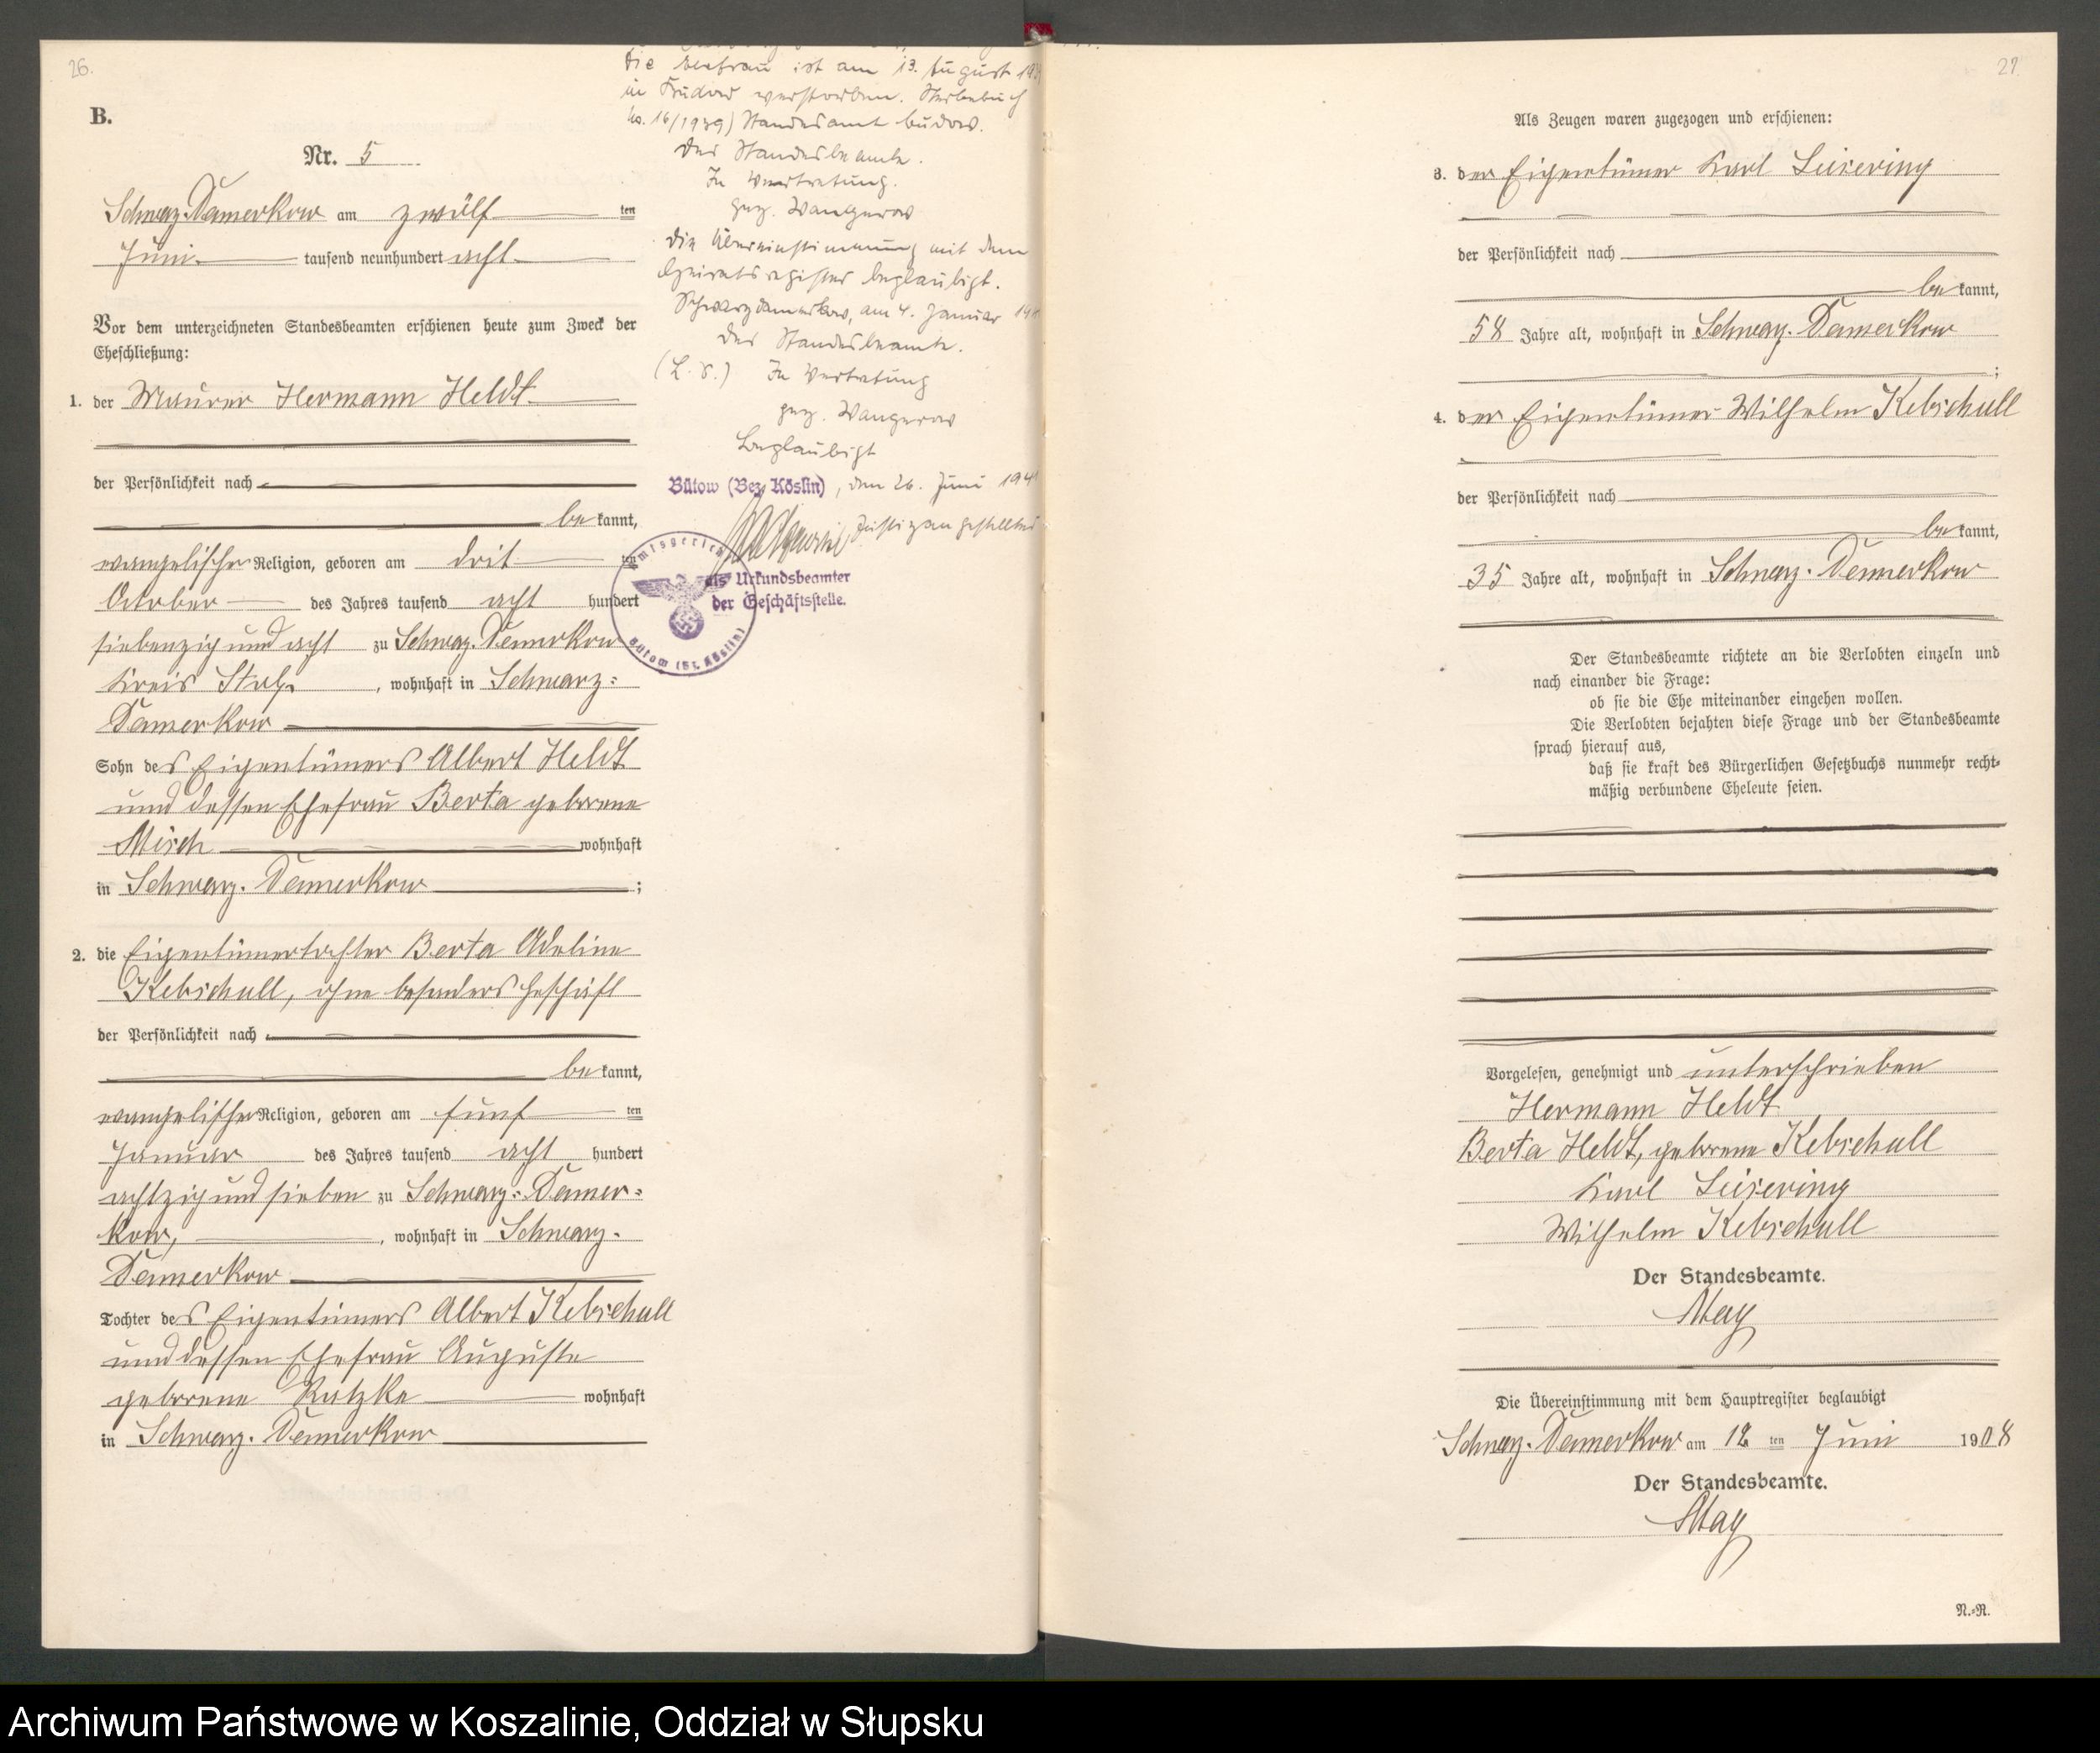 26.
B.
Nr. 5
Schwarz-Damerkow am zwölf ten
Juni tausend neunhundert acht
Vor dem unterzeichneten Standesbeamten erschienen heute zum Zweck der
Eheschließung:
1. der Maurer Hermann Heldt
der Persönlichkeit nach
be kannt,
evangelischer Religion, geboren am drit ten
October des Jahres tausend acht hundert
siebenzig und acht zu Schwarz-Damerkow
Kreis Stolp, wohnhaft in Schwarz-
Damerkow
Sohn des Eigentümers Albert Heldt
und dessen Ehefrau Berta geborene
Misch wohnhaft
in Schwarz-Damerkow ;
2. die Eigentümertochter Berta Adeline
Kebschull, ohne besonders Geschäft
der Persönlichkeit nach
be kannt,
evangelischer Religion, geboren am fünf ten
Januar des Jahres tausend acht hundert
achtzig und sieben zu Schwarz-Damer-
kow, wohnhaft in Schwarz-
Damerkow
Tochter des Eigentümers Albert Kebschull
und dessen Ehefrau Auguste
geborene Ratzke wohnhaft
in Schwarz-Damerkow
Die Ehefrau ist am 13. August
in verstorben. Sterbebuch
No. 16/1939) Standesamt Budow.
Der Standesbeamte.
In Vertretung.
gez. Wangerow
Die Übereinstimmung mit dem
Heiratsregister beglaubigt.
Schwarzdamerkow, am 4. Januar
Der Standesbeamte.
(L. S.) In Vertretung
gez. Wangerow
Beglaubigt
Bütow (Bez. Köslin), den 26. Juni
Justizangestellter
als Urkundsbeamter
der Geschäftsstelle.
Amtsgericht
Bütow (Bz. Köslin)
27.
Als Zeugen waren zugezogen und erschienen:
3. der Eigentümer Karl Leisering
der Persönlichkeit nach
be kannt,
58 Jahre alt, wohnhaft in Schwarz-Damerkow
;
4. der Eigentümer Wilhelm Kebschull
der Persönlichkeit nach
be kannt,
35 Jahre alt, wohnhaft in Schwarz-Damerkow
Der Standesbeamte richtete an die Verlobten einzeln und
nach einander die Frage:
ob sie die Ehe miteinander eingehen wollen.
Die Verlobten bejahten diese Frage und der Standesbeamte
sprach hierauf aus,
daß sie kraft des Bürgerlichen Gesetzbuchs nunmehr recht-
mäßig verbundene Eheleute seien.
Vorgelesen, genehmigt und unterschrieben
Hermann Heldt
Berta Heldt, geborene Kebschull
Karl Leisering
Wilhelm Kebschull
Der Standesbeamte.
May
Die Übereinstimmung mit dem Hauptregister beglaubigt
Schwarz-Damerkow am 12 ten Juni 1908
Der Standesbeamte.
May
N.-R.
Archiwum Państwowe w Koszalinie, Oddział w Słupsku